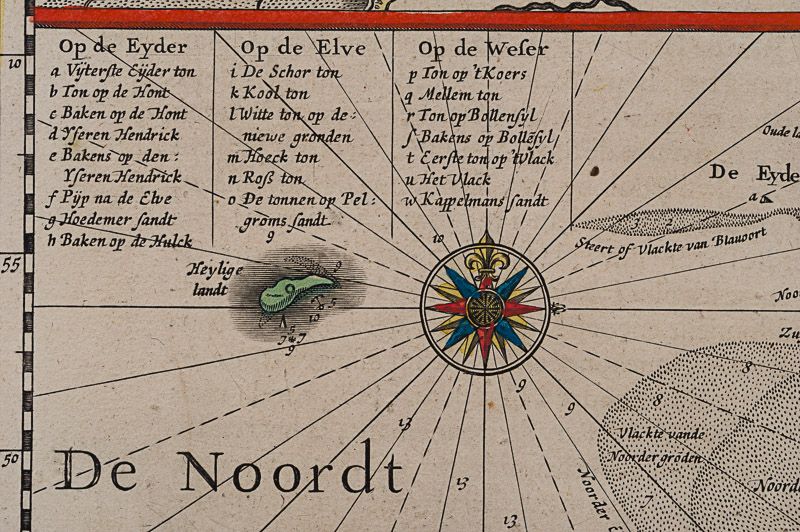 Op de Eyder
a Vyterste Eyder ton
b Ton op de Hont
c Baken op de Hont
d Yseren Hendrick
e Bakens op den:
Yseren Hendrick
f Pyp na de Elve
g Hoedemer sandt
h Baken op de Hulck
Op de Elve
i De Schor ton
k Kool ton
l Witte ton op de:
niewe gronden
m Hoeck ton
n Roß ton
o De tonnen op Pel:
groms sandt
Op de Weser
p Ton op 't Koers
q Mellem ton
r Ton op Bollensyl
ſ Bakens op Bollēsyl
t Eerste ton op 't Vlack
u Het Vlack
w Kappelmans sandt
10
55
50
Oude la
De Eyde
a
Steert of Vlackte van Blauoort
9
10
Heylige
landt
9
5
10
9
9
Noo
Zu
8
8
9
9
13
Vlackte vande
Noorder gróden
7
Noord
De Noordt
13
13
Noorder